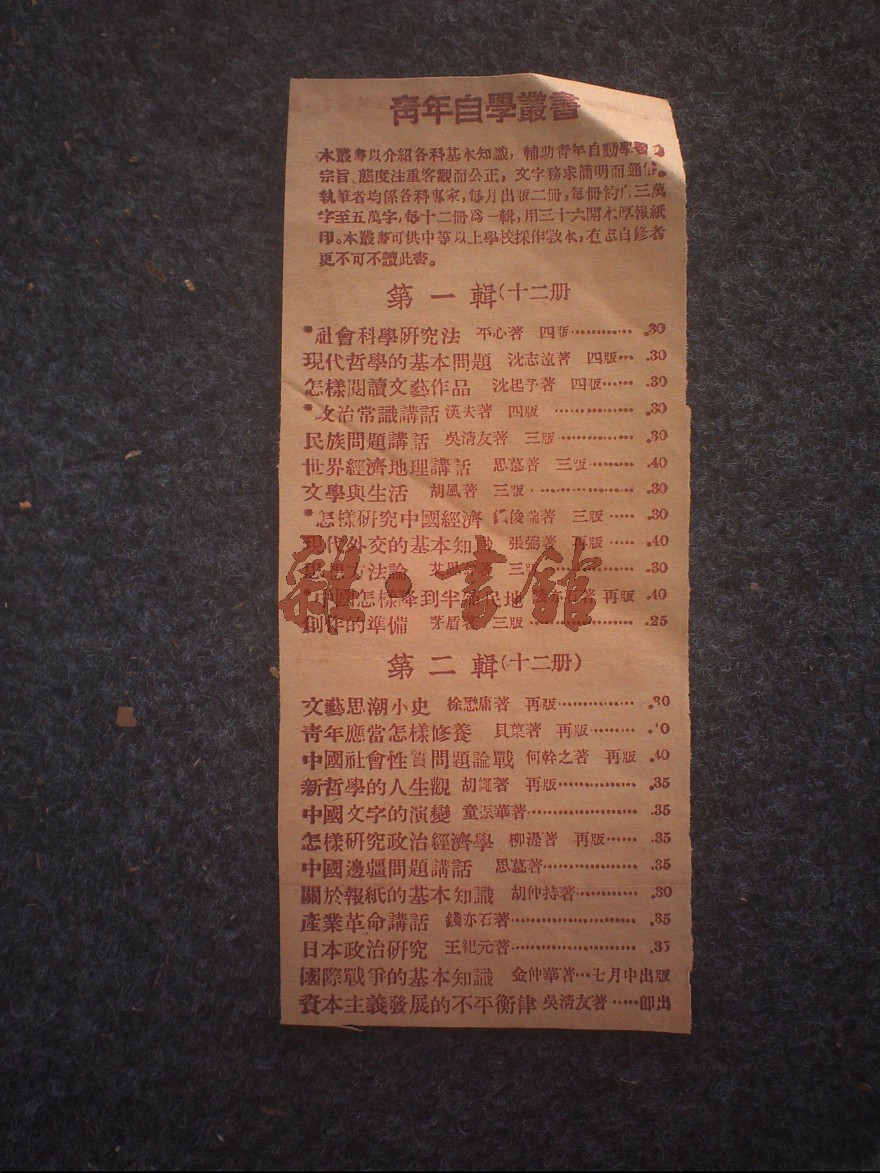 青年自學叢書
本叢書以介紹各科基本知識，輔助青年自動學習爲
宗旨、態度注重客觀而公正，文字務求簡明而通俗。
執筆者均係各科專家，每月出版二冊，每冊約廿三萬
字至五萬字，每十二冊爲一輯，用三十六開本厚報紙
印。本叢書可供中等以上學校採作敎本，有志自修者
更不可不讀此書。
第一輯(十二册
●社會科學研究法 平心著 四版 .30
現代哲學的基本問題 沈志遠著 四版 .30
怎樣閱讀文藝作品 沈起予著 四版 .30
●政治常識講話 漢夫著 四版 .30
民族問題講話 吳清友著 三版 .30
世界經濟地理講話 思慕著 三版 .40
文學與生活 胡風著 三版 .30
●怎樣研究中國經濟 錢俊瑞著 三版 .30
現代外交的基本知 張弼著 再版 .40
思想方法論 艾思奇著 三版 .30
●中國怎樣降到半殖民地 錢亦石著 再版 .40
創作的準備 茅盾著 三版 .25
雜·書館
第二輯(十二册)
文藝思潮小史 徐懋庸著 再版 .30
青年應當怎樣修養 貝葉著 再版 .
中國社會性質問題論戰 何幹之著 再版 .40
新哲學的人生觀 胡繩著 再版 .35
中國文字的演變 童振華著 .35
怎樣研究政治經濟學 柳湜著 再版 .35
中國邊疆問題講話 思慕著 .35
關於報紙的基本知識 胡仲持著 .30
產業革命講話 錢亦石著 .35
日本政治研究 王紀元著 .35
國際戰爭的基本知識 金仲華著 七月中出版
資本主義發展的不平衡律 吳清友著 即出